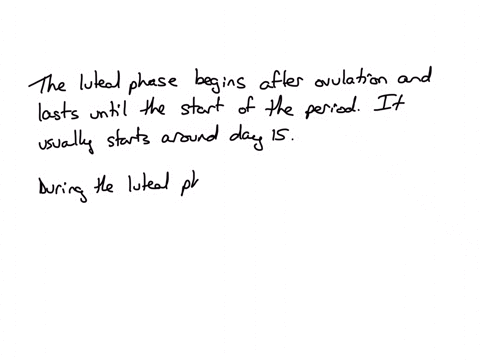 The luteal phase begins after ovulation and
lasts until the start of the period. It
usually starts around day 15.
During the luteal ph